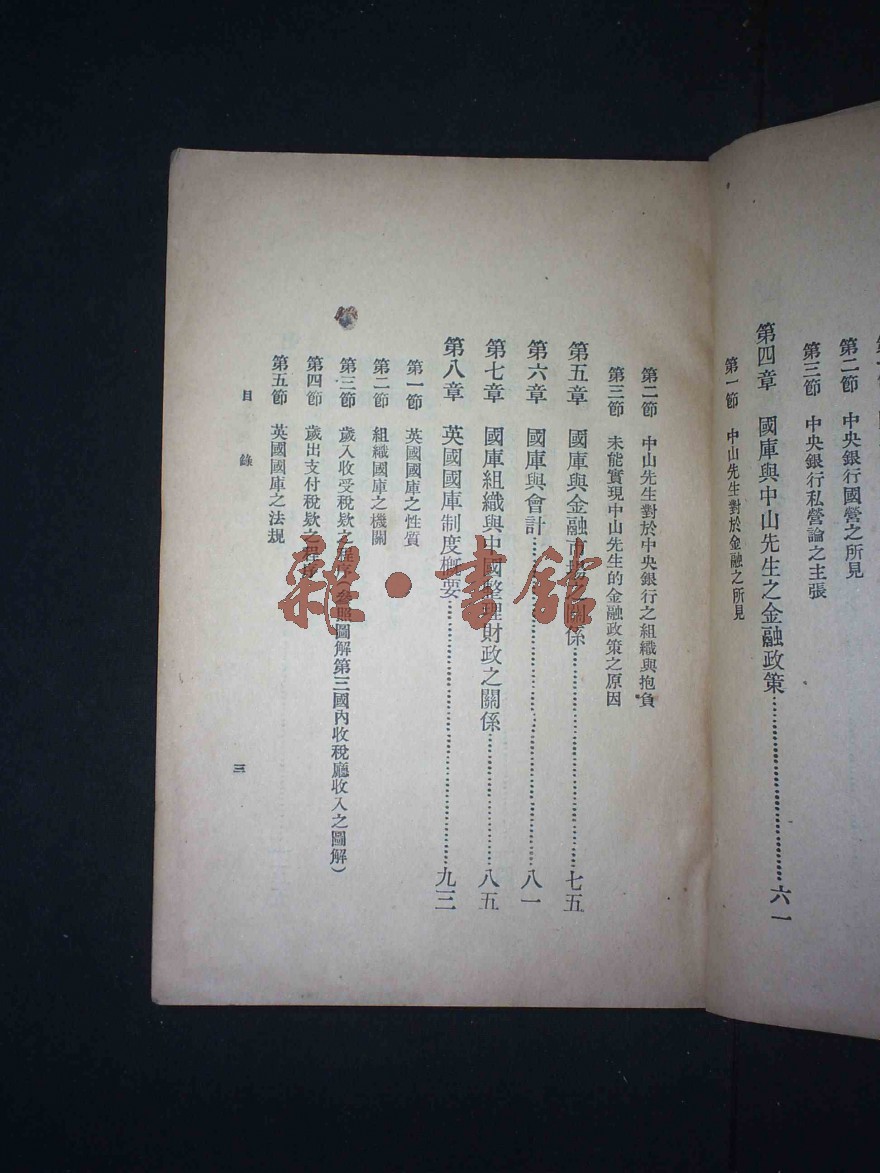 第二節　中央銀行國營之所見
第三節　中央銀行私營論之主張
第四章　國庫與中山先生之金融政策……六一
第一節　中山先生對於金融之所見
第二節　中山先生對於中央銀行之組織與抱負
第三節　未能實現中山先生的金融政策之原因
第五章　國庫與金融市場之關係……七五
第六章　國庫與會計……八一
第七章　國庫組織與中國整理財政之關係……八五
第八章　英國國庫制度概要……九三
第一節　英國國庫之性質
第二節　組織國庫之機關
第三節　歲入收受稅欵之程序(參照圖解第三國內收稅廳收入之圖解)
第四節　歲出支付稅欵之程序
第五節　英國國庫之法規
目錄
三
雜·書館